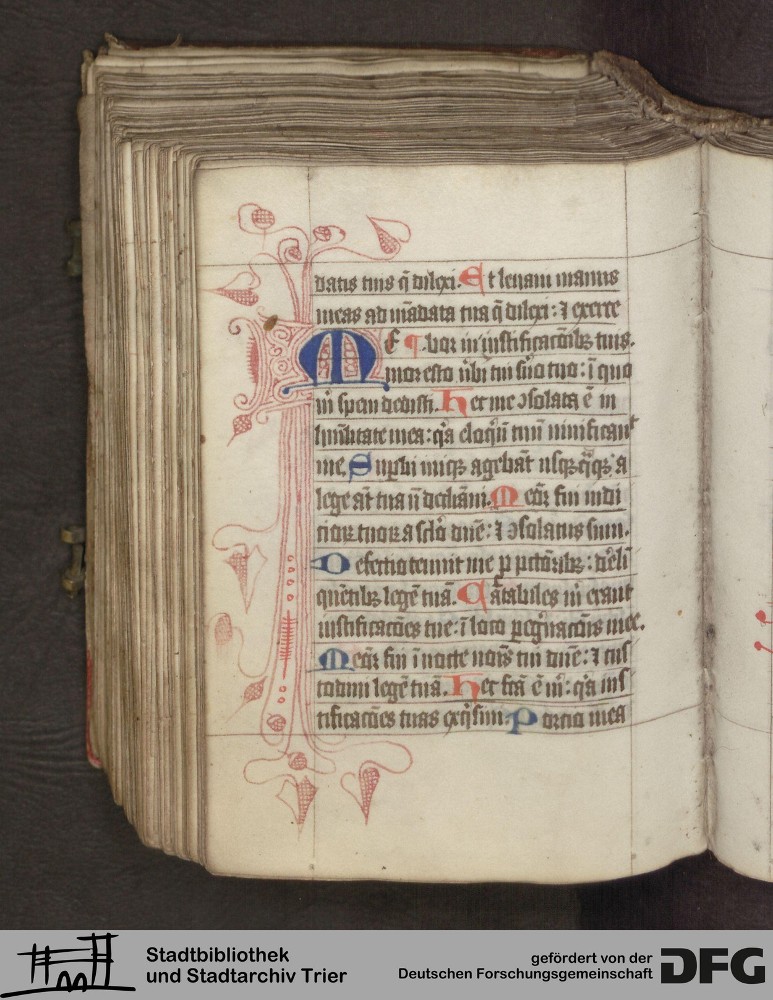 datis tuis q̄ dilexi. Et leuaui manus
meas ad mādata tua q̄ dilexi: ⁊ exerce
bor in iustificacōibꝫ tuis.
Memor esto ūbi tui ẜuo tuo: ī quo
m̄ spem dedisti. Hec me ꝯsolata ē in
humilitate mea: qͣ eloqͥū tuū uiuificauͭ
me. Suꝑbi iniq̄ agebāt usqꝫq̄qꝫ: a
lege aūt tua nō decliāui. Memor fui iudi
cioꝝ tuoꝝ a sc̄lo dn̄e: ⁊ ꝯsolatus sum.
Defectio tenuit me ꝑ pctōribꝫ: derelī
quētibꝫ legē tuā. Cātabiles m̄ erant
iustificacōes tue: ī loco ꝑegͥnacōis mee.
Memor fui ī nocte nōis tui dn̄e: ⁊ cus
todiui legē tuā. Hec fcā ē m̄: qͣ ius
tificacōes tuas exqͥsiui. Portio mea
Stadtbibliothek
und Stadtarchiv Trier
gefördert von der
Deutschen Forschungsgemeinschaft
DFG